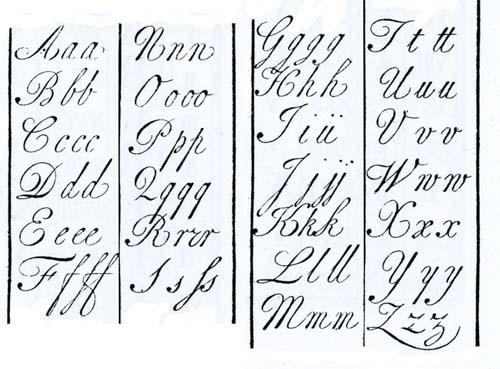 Aaa
Bbb
Cccc
Ddd
Eeee
Ffff
Nnn
Oooo
Ppp
Qqqq
Rrrr
Ssſs
Gggg
Hhh
Iiii
Jjjj
Kkk
Llll
Mmm
Tttt
Uuu
Vvv
Www
Xxx
Yyy
Zzz